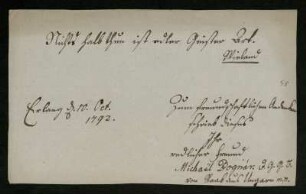 Nichts halb thun ist edler Geister Art.
Wieland
Erlang d. 10. Oct.
1792.
Zum freundschaftlichen Andenken
schrieb dieses
Ihr
redlicher Freund
Michael Bognár
von Raab aus Ungarn